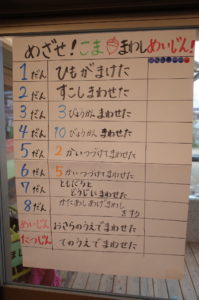 めざせ!こままわしめいじん!
1だん ひもがまけた
2だん すこしまわせた
3だん 3びょうかんまわせた
4だん 10びょうかんまわせた
5だん 2かいつづけてまわせた
6だん 5かいつづけてまわせた
7だん ともだちと
どうじにまわせた
8だん
めいじん おさらのうえでまわせた
たつじん てのうえでまわせた